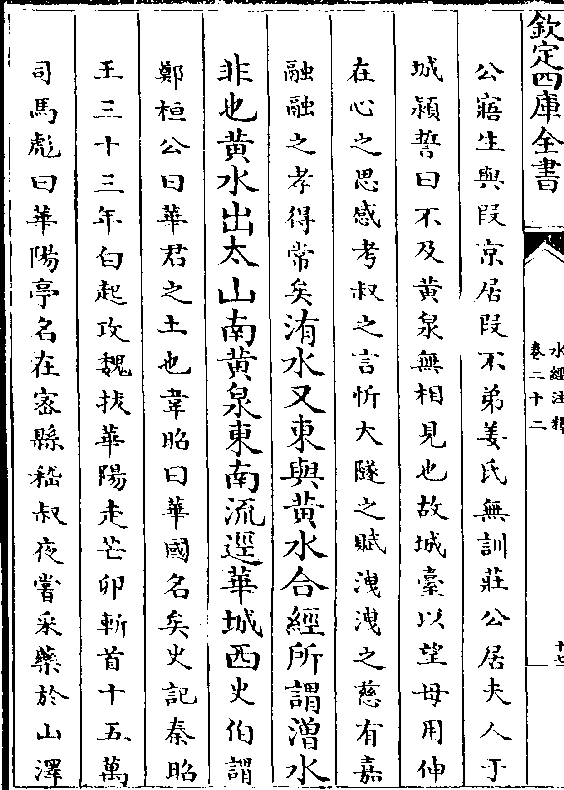 欽定四庫全書
水經注釋
卷二十二
十七
公寤生與段京居段不弟姜氏無訓莊公居夫人于
城潁誓曰不及黃泉無相見也故城臺以望母用伸
在心之思感考叔之言忻大隧之賦洩洩之慈有嘉
融融之孝得常矣洧水又東與黃水合經所謂潧水
非也黃水出太山南黃泉東南流逕華城西史伯謂
鄭桓公曰華君之土也韋昭曰華國名矣史記秦昭
王三十三年白起攻魏拔華陽走芒卯斬首十五萬
司馬彪曰華陽亭名在密縣嵇叔夜嘗采藥於山澤